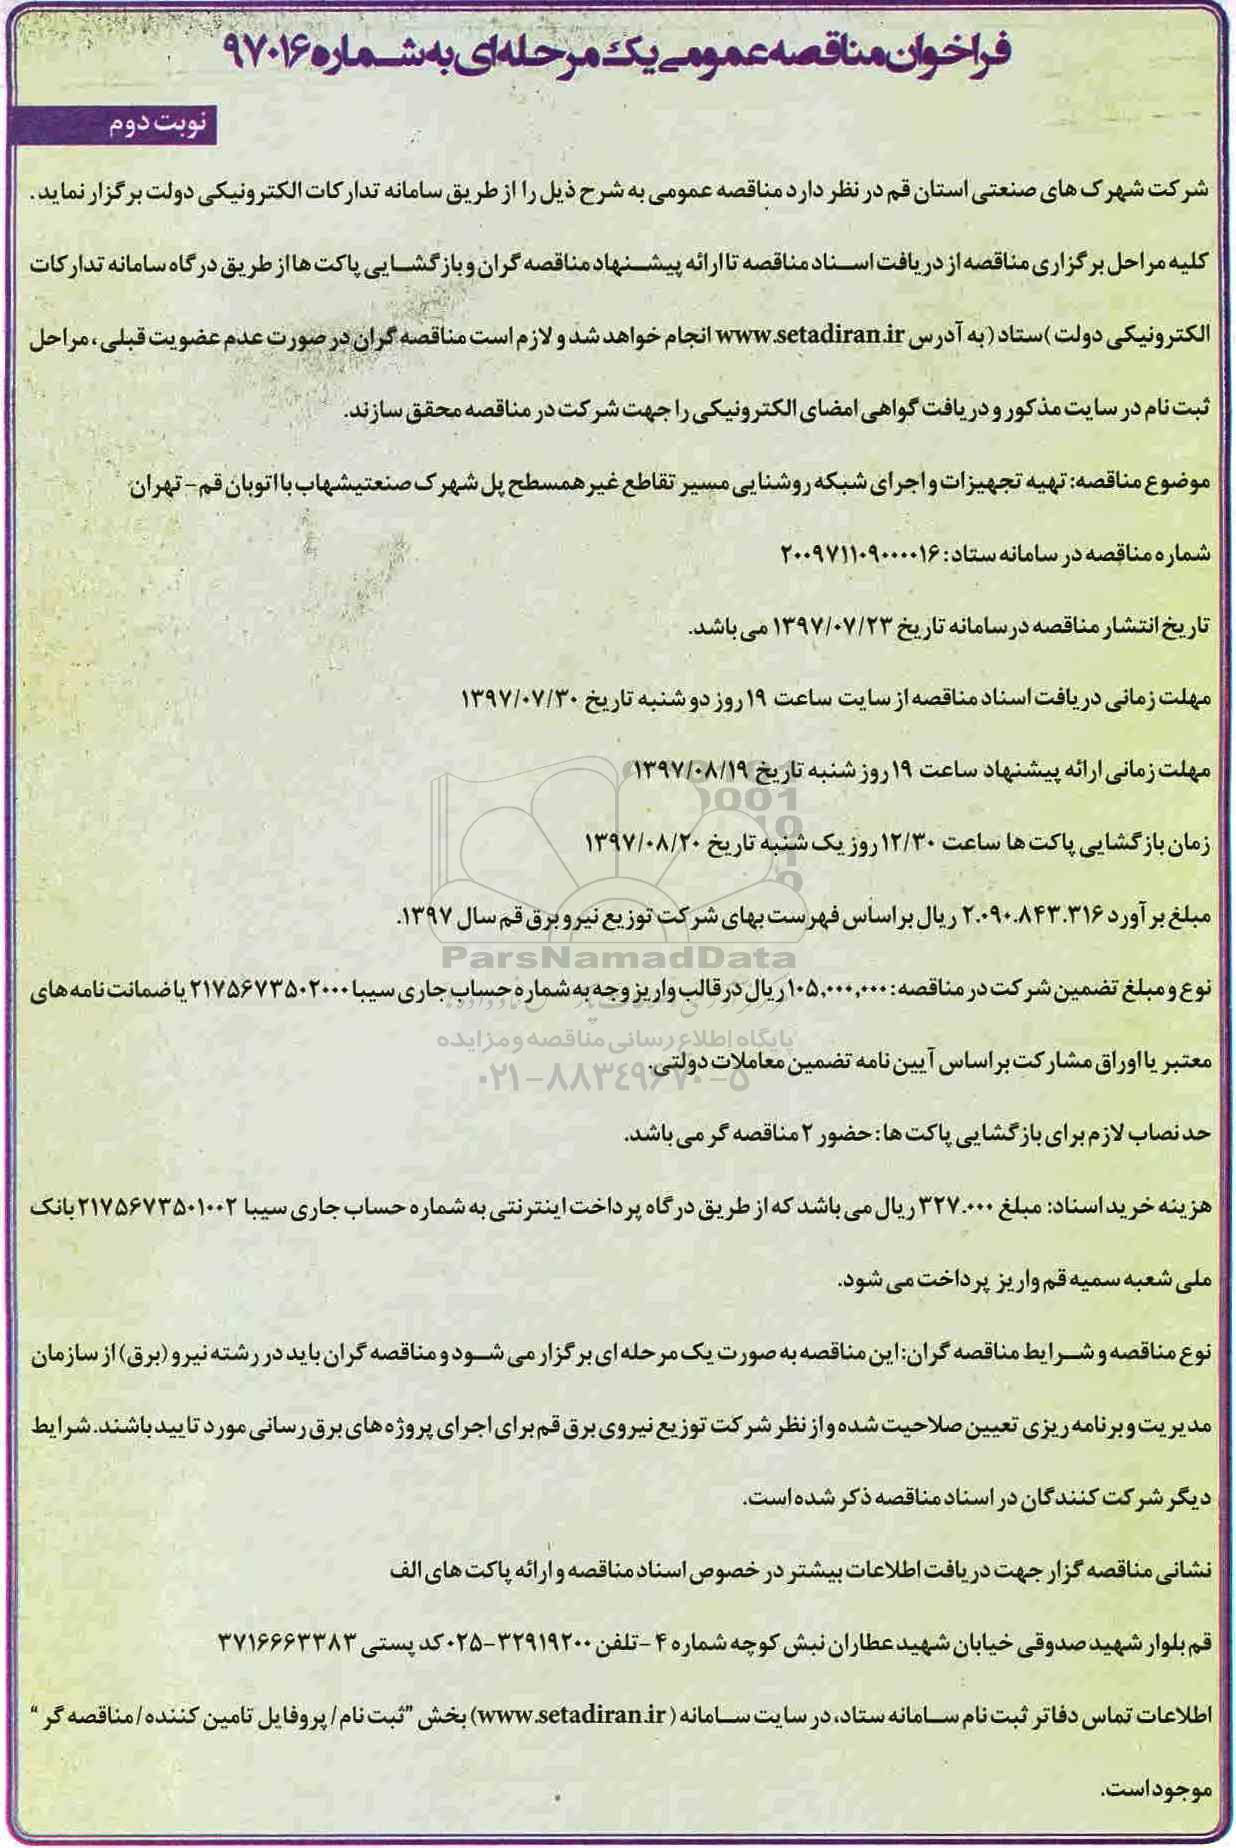 فراخوان مناقصه عمومی یک مرحله‌ای به شماره ۹۷۰۱۶
نوبت دوم
شرکت شهرک های صنعتی استان قم در نظر دارد مناقصه عمومی به شرح ذیل را از طریق سامانه تدارکات الکترونیکی دولت برگزار نماید .
کلیه مراحل برگزاری مناقصه از دریافت اسناد مناقصه تا ارائه پیشنهاد مناقصه گران و بازگشایی پاکت ها از طریق درگاه سامانه تدارکات
الکترونیکی دولت )ستاد( به آدرس www.setadiran.ir انجام خواهد شد و لازم است مناقصه گران در صورت عدم عضویت قبلی ، مراحل
ثبت نام در سایت مذکور و دریافت گواهی امضای الکترونیکی را جهت شرکت در مناقصه محقق سازند.
موضوع مناقصه: تهیه تجهیزات و اجرای شبکه روشنایی مسیر تقاطع غیر همسطح پل شهرک صنعتیشهاب با اتوبان قم - تهران
شماره مناقصه در سامانه ستاد: ۲۰۰۹۷۱۱۰۹۰۰۰۰۱۶
تاریخ انتشار مناقصه درسامانه تاریخ ۱۳۹۷/۰۷/۲۳ می باشد.
مهلت زمانی دریافت اسناد مناقصه از سایت ساعت ۱۹ روز دوشنبه تاریخ ۱۳۹۷/۰۷/۳۰
مهلت زمانی ارائه پیشنهاد ساعت ۱۹ روز شنبه تاریخ ۱۳۹۷/۰۸/۱۹
زمان بازگشایی پاکت ها ساعت ۱۲/۳۰ روز یک شنبه تاریخ ۱۳۹۷/۰۸/۲۰
مبلغ برآورد ۲.۰۹۰.۸۴۳.۳۱۶ ریال براساس فهرست بهای شرکت توزیع نیرو برق قم سال ۱۳۹۷.
ParsNamadData
نوع و مبلغ تضمین شرکت در مناقصه: ۱۰۵,۰۰۰,۰۰۰ ریال در قالب واریز وجه به شماره حساب جاری سیبا ۲۱۷۵۶۷۳۵۰۲۰۰۰ یا ضمانت نامه های
پایگاه اطلاع رسانی مناقصه و مزایده
معتبر یا اوراق مشارکت براساس آیین نامه تضمین معاملات دولتی.
۰۲۱-۸۸۳۴۹۶۷۰-۵
حد نصاب لازم برای بازگشایی پاکت ها : حضور ۲ مناقصه گر می باشد.
هزینه خرید اسناد: مبلغ ۳۲۷.۰۰۰ ریال می باشد که از طریق درگاه پرداخت اینترنتی به شماره حساب جاری سیبا ۲۱۷۵۶۷۳۵۰۱۰۰۲ بانک
ملی شعبه سمیه قم واریز پرداخت می شود.
نوع مناقصه و شرایط مناقصه گران: این مناقصه به صورت یک مرحله ای برگزار می شود و مناقصه گران باید در رشته نیرو (برق) از سازمان
مدیریت و برنامه ریزی تعیین صلاحیت شده و از نظر شرکت توزیع نیروی برق قم برای اجرای پروژه های برق رسانی مورد تایید باشند. شرایط
دیگر شرکت کنندگان در اسناد مناقصه ذکر شده است.
نشانی مناقصه گزار جهت دریافت اطلاعات بیشتر در خصوص اسناد مناقصه و ارائه پاکت های الف
قم بلوار شهید صدوقی خیابان شهید عطاران نبش کوچه شماره ۴ -تلفن ۳۲۹۱۹۲۰۰-۰۲۵ کد پستی ۳۷۱۶۶۶۳۳۸۳
اطلاعات تماس دفاتر ثبت نام سامانه ستاد، در سایت سامانه (www.setadiran.ir) بخش "ثبت نام / پروفایل تامین کننده / مناقصه گر "
موجود است.